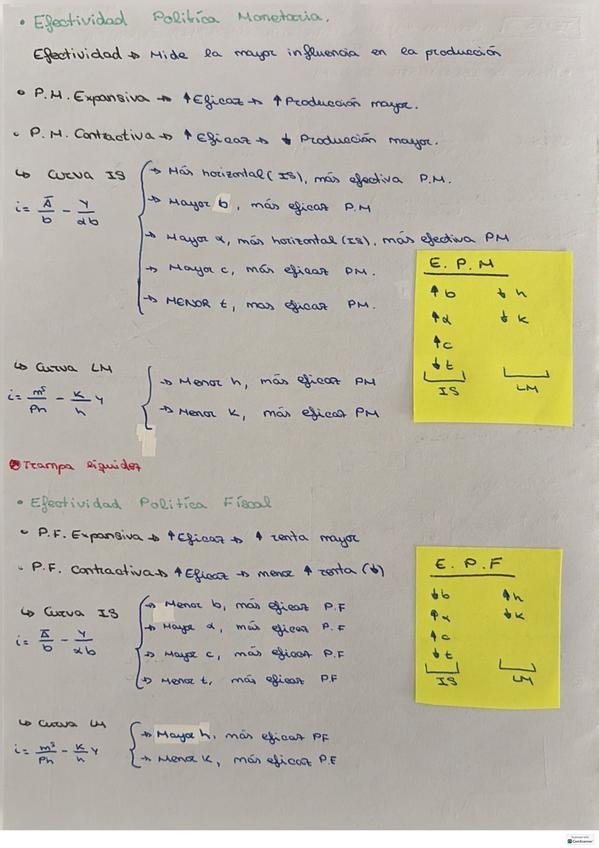 • Efectividad Política Monetaria.
Efectividad → Mide la mayor influencia en la producción
• P.M. Expansiva → ↑ Eficaz → ↑ Producción mayor.
• P.M. Contractiva → ↑ Eficaz → ↓ Producción mayor.
↳ Curva IS
i = Ā/b - Y/αb
→ Más horizontal (IS), más efectiva P.M.
→ Mayor b, más eficaz P.M
→ Mayor α, más horizontal (IS), más efectiva PM
→ Mayor c, más eficaz PM.
→ MENOR t, mas eficaz PM.
E. P. M
↑ b ↓ h
↑ α ↓ k
↑ c
↓ t
IS LM
↳ Curva LM
i = mˢ/Ph - K/h Y
→ Menor h, más eficaz PM
→ Menor K, más eficaz PM
Trampa liquidez
• Efectividad Política Fiscal
• P.F. Expansiva → ↑ Eficaz → ↑ renta mayor
• P.F. Contractiva → ↑ Eficaz → menor ↑ renta (↓)
↳ Curva IS
i = Ā/b - Y/αb
→ Menor b, más eficaz P.F
→ Mayor α, más eficaz P.F
→ Mayor c, más eficaz P.F
→ Menor t, más eficaz P.F
E. P. F
↓ b ↑ h
↑ α ↓ k
↑ c
↓ t
IS LM
↳ Curva LM
i = mˢ/Ph - K/h Y
→ Mayor h, más eficaz PF
→ Menor K, más eficaz P.F
CamScanner